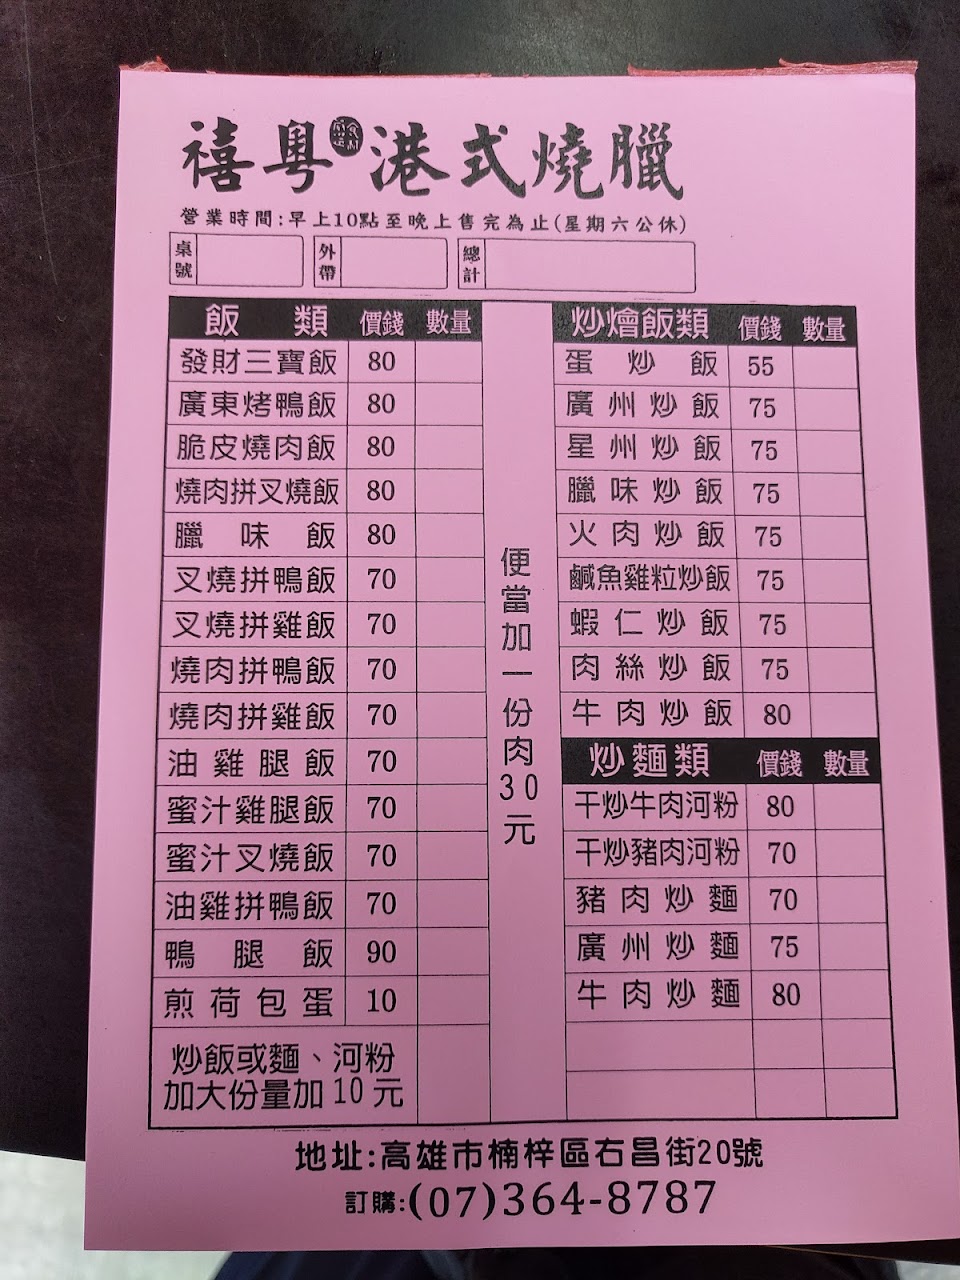 禧粵港式燒臘
營業時間:早上10點至晚上售完為止(星期六公休)
桌號 外帶 總計
飯類 價錢 數量
發財三寶飯 80
廣東烤鴨飯 80
脆皮燒肉飯 80
燒肉拼叉燒飯 80
臘味飯 80
叉燒拼鴨飯 70
叉燒拼雞飯 70
燒肉拼鴨飯 70
燒肉拼雞飯 70
油雞腿飯 70
蜜汁雞腿飯 70
蜜汁叉燒飯 70
油雞拼鴨飯 70
鴨腿飯 90
煎荷包蛋 10
炒飯或麵、河粉
加大份量加10元
便當加一份肉30元
炒燴飯類 價錢 數量
蛋炒飯 55
廣州炒飯 75
星州炒飯 75
臘味炒飯 75
火肉炒飯 75
鹹魚雞粒炒飯 75
蝦仁炒飯 75
肉絲炒飯 75
牛肉炒飯 80
炒麵類 價錢 數量
干炒牛肉河粉 80
干炒豬肉河粉 70
豬肉炒麵 70
廣州炒麵 75
牛肉炒麵 80
地址:高雄市楠梓區右昌街20號
訂購:(07)364-8787